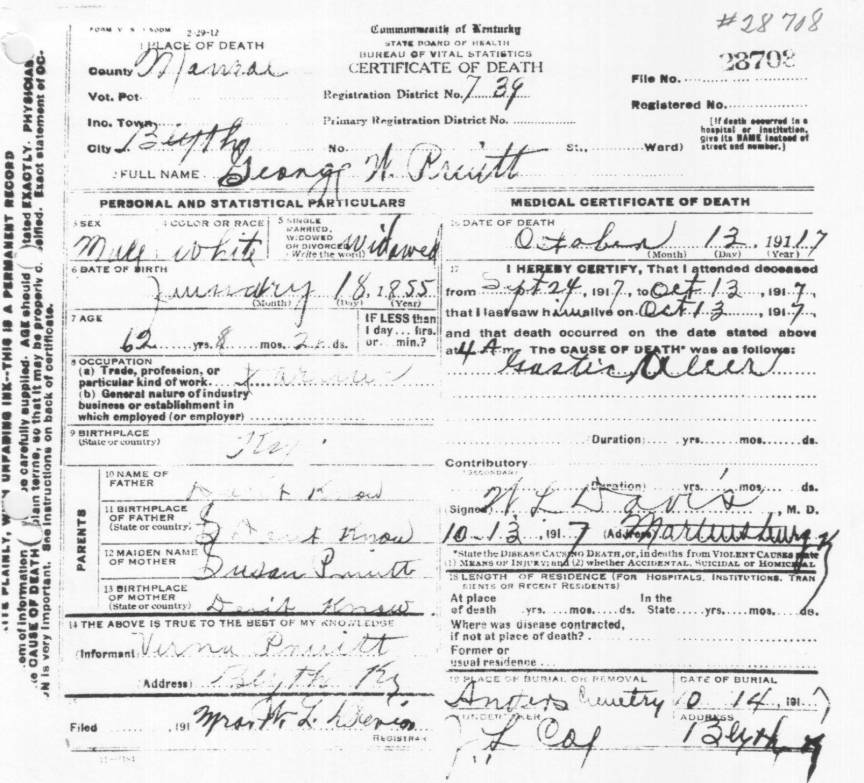 #28708
FORM V. S. 2-29-12
Commonwealth of Kentucky
STATE BOARD OF HEALTH
BUREAU OF VITAL STATISTICS
CERTIFICATE OF DEATH
28708
1 PLACE OF DEATH
County Monroe
Vot. Pct.
Inc. Town
City Blythe
Registration District No. 739
Primary Registration District No.
No. St., Ward)
File No.
Registered No.
[If death occurred in a
hospital or institution,
give its NAME instead of
street and number.]
2 FULL NAME George W. Pruitt
PERSONAL AND STATISTICAL PARTICULARS
3 SEX
Male
4 COLOR OR RACE
White
5 SINGLE
MARRIED,
WIDOWED
OR DIVORCED
(Write the word)
Widowed
6 DATE OF BIRTH
18, 1855
(Month) (Day) (Year)
7 AGE
62 yrs. 8 mos. ds.
IF LESS than
1 day... hrs.
or... min.?
8 OCCUPATION
(a) Trade, profession, or
particular kind of work Farmer
(b) General nature of industry
business or establishment in
which employed (or employer)
9 BIRTHPLACE
(State or country)
Ky.
PARENTS
10 NAME OF
FATHER
Don't Know
11 BIRTHPLACE
OF FATHER
(State or country)
Don't Know
12 MAIDEN NAME
OF MOTHER
Susan Pruitt
13 BIRTHPLACE
OF MOTHER
(State or country)
Don't Know
14 THE ABOVE IS TRUE TO THE BEST OF MY KNOWLEDGE
(Informant) Pruitt
(Address) Blyth Ky
15
Filed 191 Mrs. W. L. Davis
REGISTRAR
MEDICAL CERTIFICATE OF DEATH
16 DATE OF DEATH
October 13, 1917
(Month) (Day) (Year)
17 I HEREBY CERTIFY, That I attended deceased
from Sept 24, 1917, to Oct 13, 1917,
that I last saw him alive on Oct 13, 1917,
and that death occurred on the date stated above
at 4 A m. The CAUSE OF DEATH* was as follows:
Gastic Ulcer
(Duration) yrs. mos. ds.
Contributory
(SECONDARY)
(Duration) yrs. mos. ds.
Signed W L Davis, M. D.
10-13, 1917 (Address)
*State the DISEASE CAUSING DEATH, or, in deaths from VIOLENT CAUSES state
(1) MEANS OF INJURY; and (2) whether ACCIDENTAL, SUICIDAL OR HOMICIDAL
18 LENGTH OF RESIDENCE (FOR HOSPITALS, INSTITUTIONS, TRAN
SIENTS OR RECENT RESIDENTS)
At place
of death yrs. mos. ds.
In the
State yrs. mos. ds.
Where was disease contracted,
if not at place of death?
Former or
usual residence
19 PLACE OF BURIAL OR REMOVAL
Anders Cemetry
DATE OF BURIAL
10 14, 1917
UNDERTAKER
ADDRESS
Blyth Ky
UNFADING INK--THIS IS A PERMANENT RECORD
be carefully supplied. AGE should stated EXACTLY. PHYSICIANS
CAUSE OF DEATH plain terms, so that it may be properly Exact statement of OC-
is very important. See instructions on back of certificate.